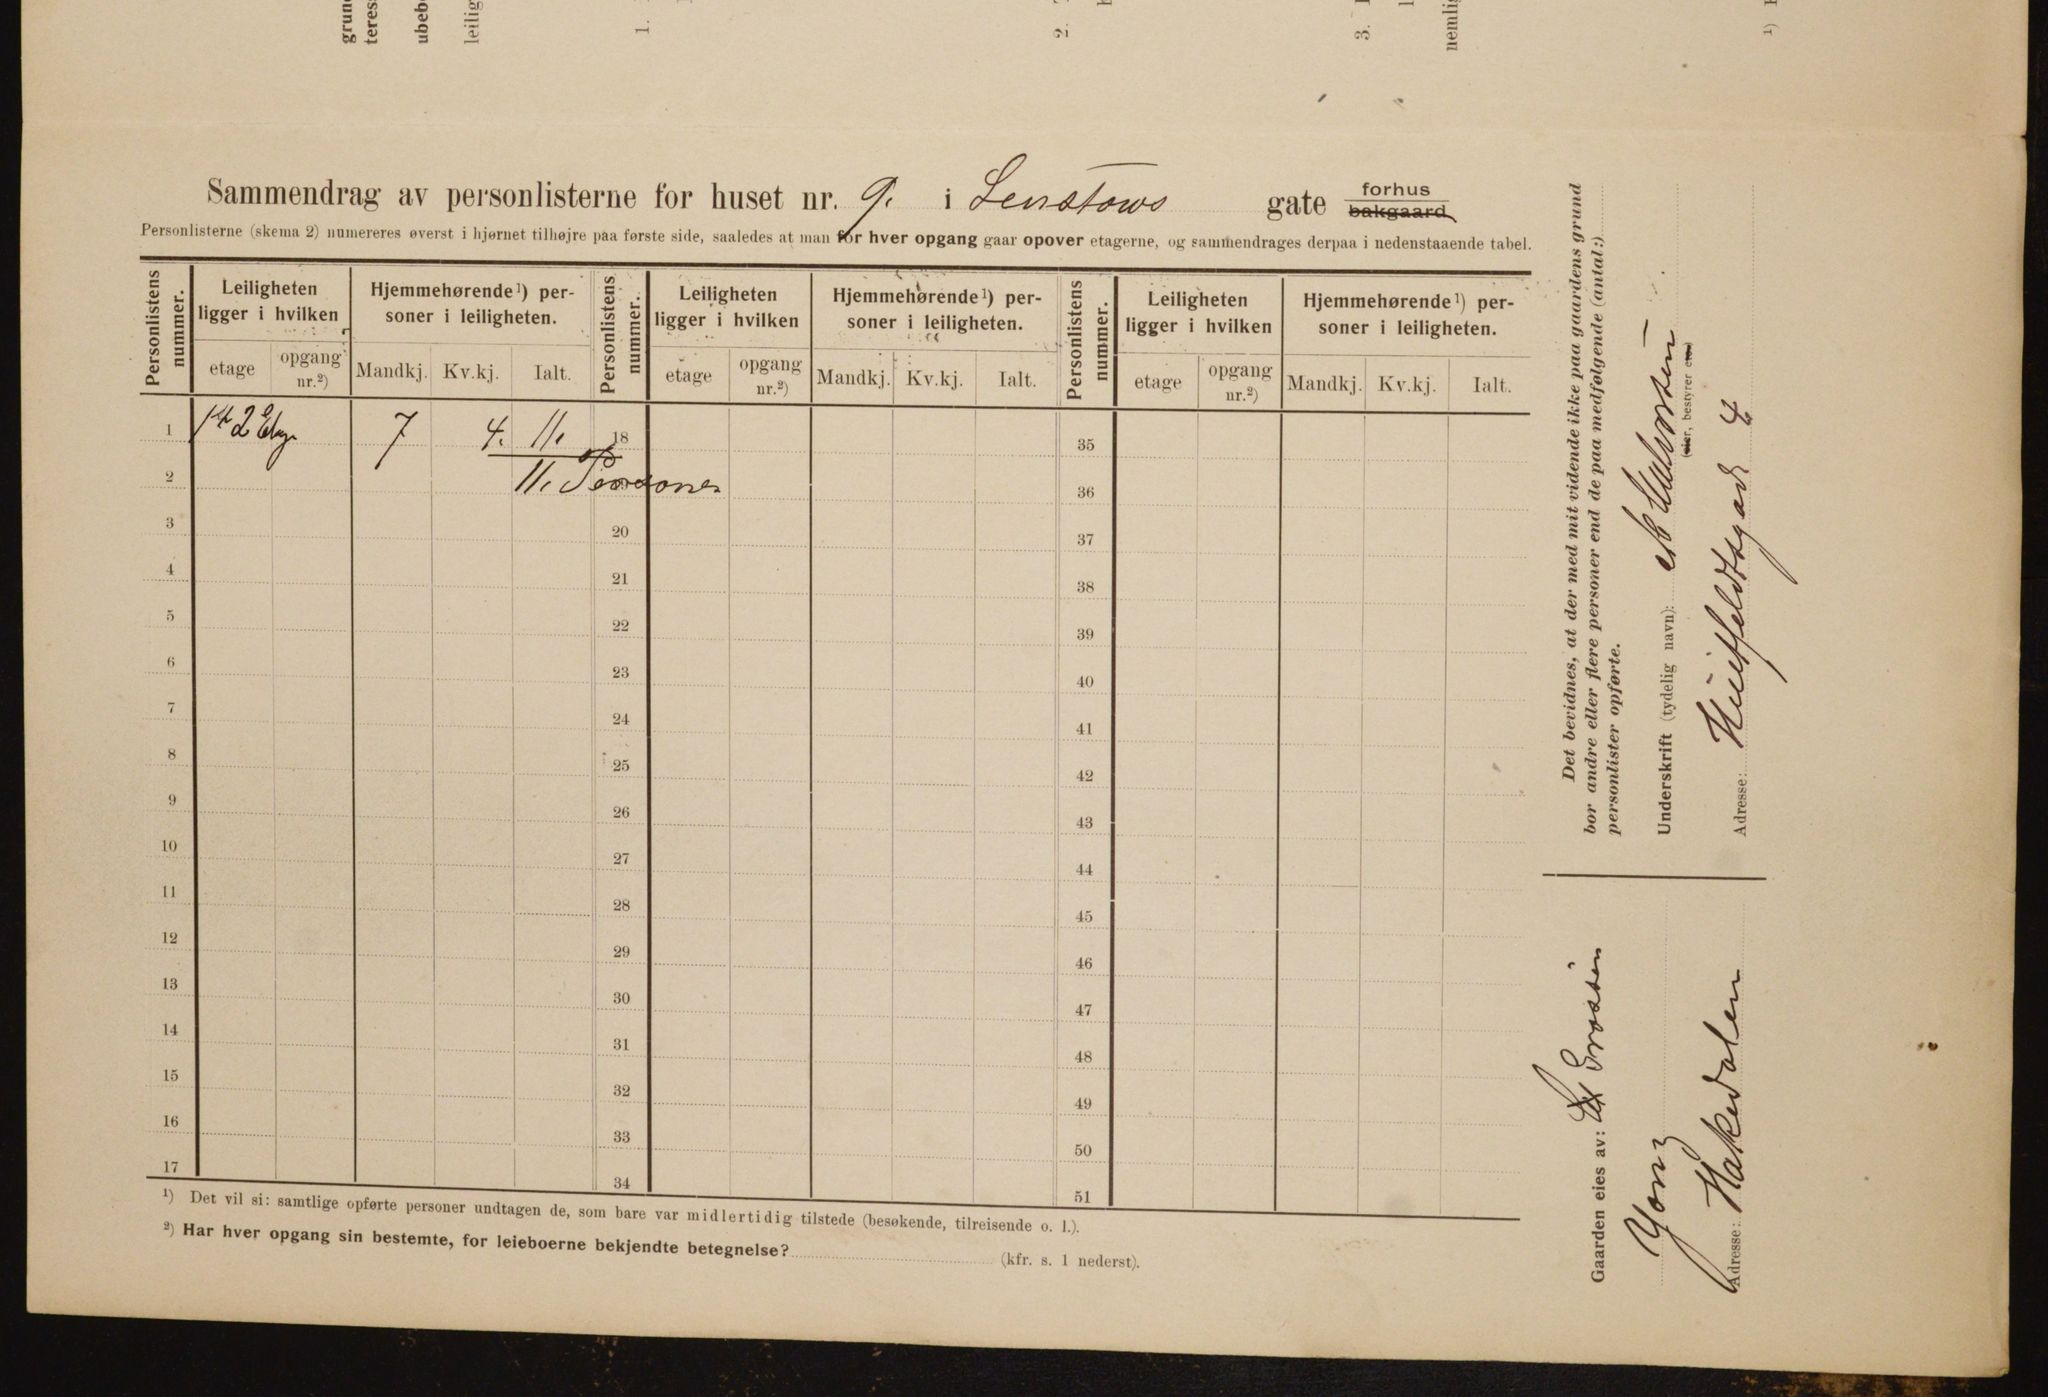 grun
teres
ubeb
leilig
1.
2.
3.
nemlig
1)
Sammendrag av personlisterne for huset nr. 9. i Senstows gate forhus
bakgaard
Personlisterne (skema 2) numereres øverst i hjørnet tilhøjre paa første side, saaledes at man for hver opgang gaar opover etagerne, og sammendrages derpaa i nedenstaaende tabel.
Personlistens nummer. Leiligheten ligger i hvilken Hjemmehørende 1) personer i leiligheten. Personlistens nummer. Leiligheten ligger i hvilken Hjemmehørende 1) personer i leiligheten. Personlistens nummer. Leiligheten ligger i hvilken Hjemmehørende 1) personer i leiligheten.
etage opgang nr. 2) Mandkj. Kv.kj. Ialt. etage opgang nr. 2) Mandkj. Kv.kj. Ialt. etage opgang nr. 2) Mandkj. Kv.kj. Ialt.
1 2 Etg. 7 4. 11. 18 35
2 11. Personer 36
3 20 37
4 21 38
5 22 39
6 23 40
7 24 41
8 25 42
9 26 43
10 27 44
11 28 45
12 29 46
13 30 47
14 31 48
15 32 49
16 33 50
17 34 51
1) Det vil si: samtlige opførte personer undtagen de, som bare var midlertidig tilstede (besøkende, tilreisende o. l.).
2) Har hver opgang sin bestemte, for leieboerne bekjendte betegnelse? (kfr. s. 1 nederst).
Det bevidnes, at der med mit vidende ikke paa gaardens grund
bor andre eller flere personer end de paa medfølgende (antal:)
personlister opførte.
Underskrift (tydelig navn): Halvorsen
(eier, bestyrer etc.)
Adresse: Huitfeldtsgad 4
Gaarden eies av:
Adresse: Hakedalen